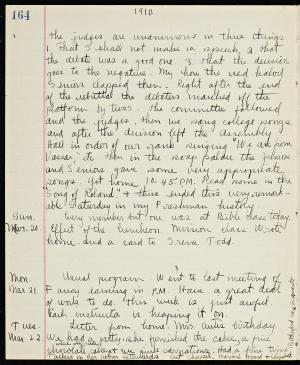 164
1910
the judges are unanimous in three things
1, That I shall not make a speech, 2 that
the debate was a good one. 3 that the decision
goes to the negative. My how the red haired
Seniors clapped them. Right after the end
of the rebuttal the debaters marched off the
platform by twos. The committee followed
and the judges, then we sang college songs
and after the decision left the assembly
Hall in order of our rank singing "We are from
Vassar," etc then in the soap palace the juniors
and Seniors gave some very appropriate
songs. Got home 10:45 P.M. Read some in the
Song of Roland" + thus ended this very remark-
able Saturday in my Freshman history.
Sun.
Mar. 20.
Every member but one was at Bible class today.
Effect of the luncheon. Mission class. Wrote
home and a card to Todd.
Mon.
Mar 21.
Usual program. Went to last meeting of
Fancy earning in P.M. Have a great deal
of work to do. This week is just awful.
Each instructor is heaping it on.
Tues.
Mar 22.
Letter from home. Mrs. birthday.
We had a party she furnished the cake, a fine
chocolate cake + we pink carnations. Had a fine time